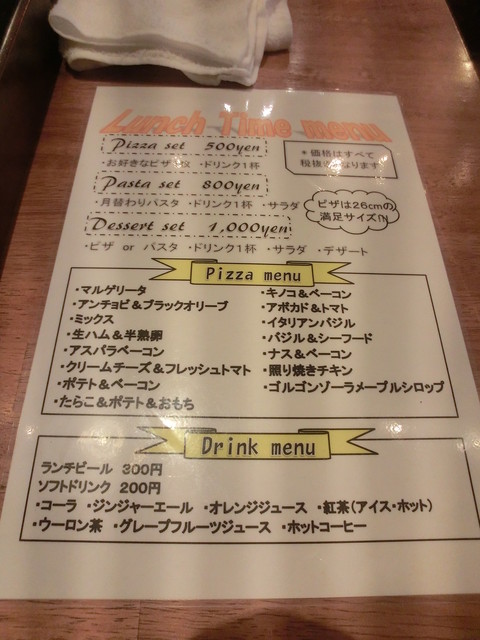 Lunch Time menu
Pizza set 500yen
・お好きなピザ ・ドリンク1杯
*価格はすべて
税抜 なります
Pasta set 800yen
・月替わりパスタ ・ドリンク1杯 ・サラダ
ピザは26cmの
満足サイズ!!
Dessert set 1,000yen
・ピザ or パスタ ・ドリンク1杯 ・サラダ ・デザート
Pizza menu
・マルゲリータ
・アンチョビ&ブラックオリーブ
・ミックス
・生ハム&半熟卵
・アスパラベーコン
・クリームチーズ&フレッシュトマト
・ポテト&ベーコン
・たらこ&ポテト&おもち
・キノコ&ベーコン
・アボカド&トマト
・イタリアンバジル
・バジル&シーフード
・ナス&ベーコン
・照り焼きチキン
・ゴルゴンゾーラメープルシロップ
Drink menu
ランチビール 300円
ソフトドリンク 200円
・コーラ ・ジンジャーエール ・オレンジジュース ・紅茶(アイス・ホット)
・ウーロン茶 ・グレープフルーツジュース ・ホットコーヒー